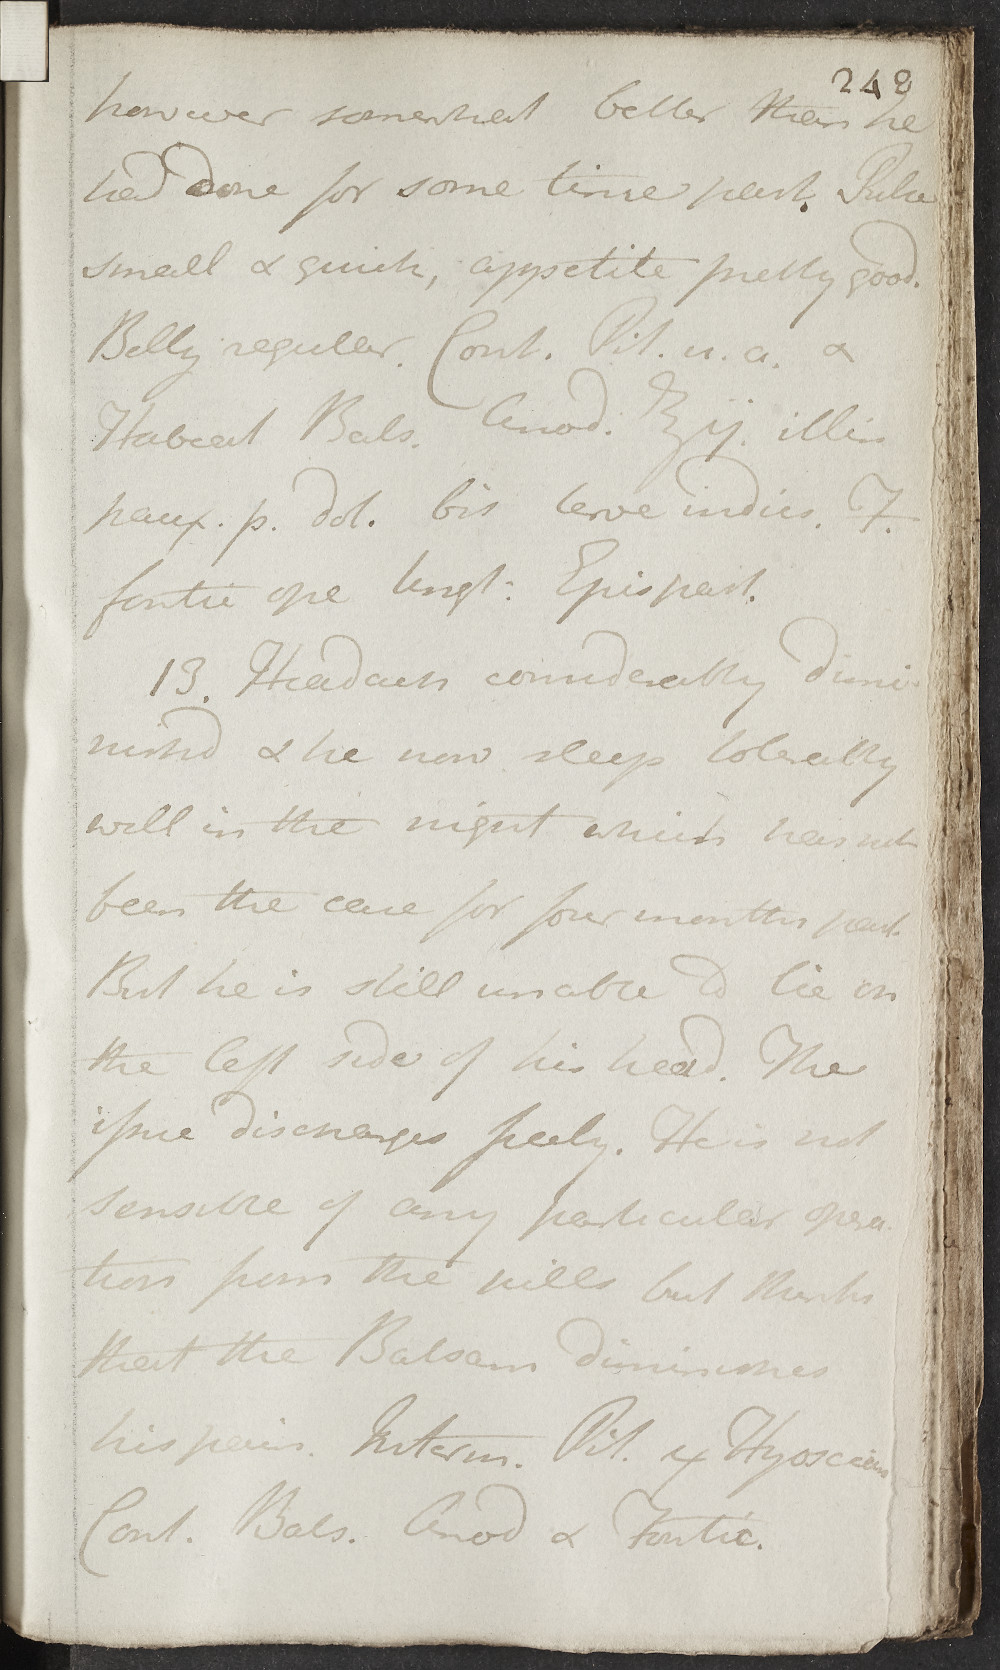 248
however somewhat better than he
had done for some time past. Pulse
small & quick, appetite pretty good.
Belly regular. Cont. Pil. u. a. &
Habeat Bals. Anod. ℥ij. illin
paux. p. dol. bis terve indies. F.
fontic ope Ungt: Epispast.
13. Headach considerably dimi-
nishd & he now sleeps tolerably
well in the night which has not
been the case for four months past.
But he is still unable to lie on
the left side of his head. The
issue discharges freely. He is not
sensible of any particular opera-
tion from the pills but thinks
that the Balsam diminishes
his pain. Interm. Pil. ex Hyosciam
Cont. Bals. Anod & Fontic.